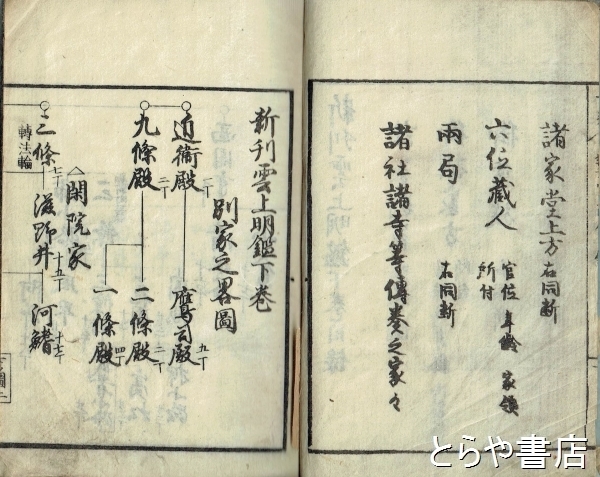 諸家堂上方 右同断
六位藏人 官位 年齢 家領
所付
兩局 右同断
諸社諸寺等傳奏之家々
新刊雲上明鑑下巻
別家之畧圖
近衞殿 二丁 鷹司殿 九丁
九條殿 三丁 二條殿 二丁
一條殿 四丁
閑院家
三條 七丁 滋野井 十五丁 河鰭 十七丁
轉法輪
とらや書店